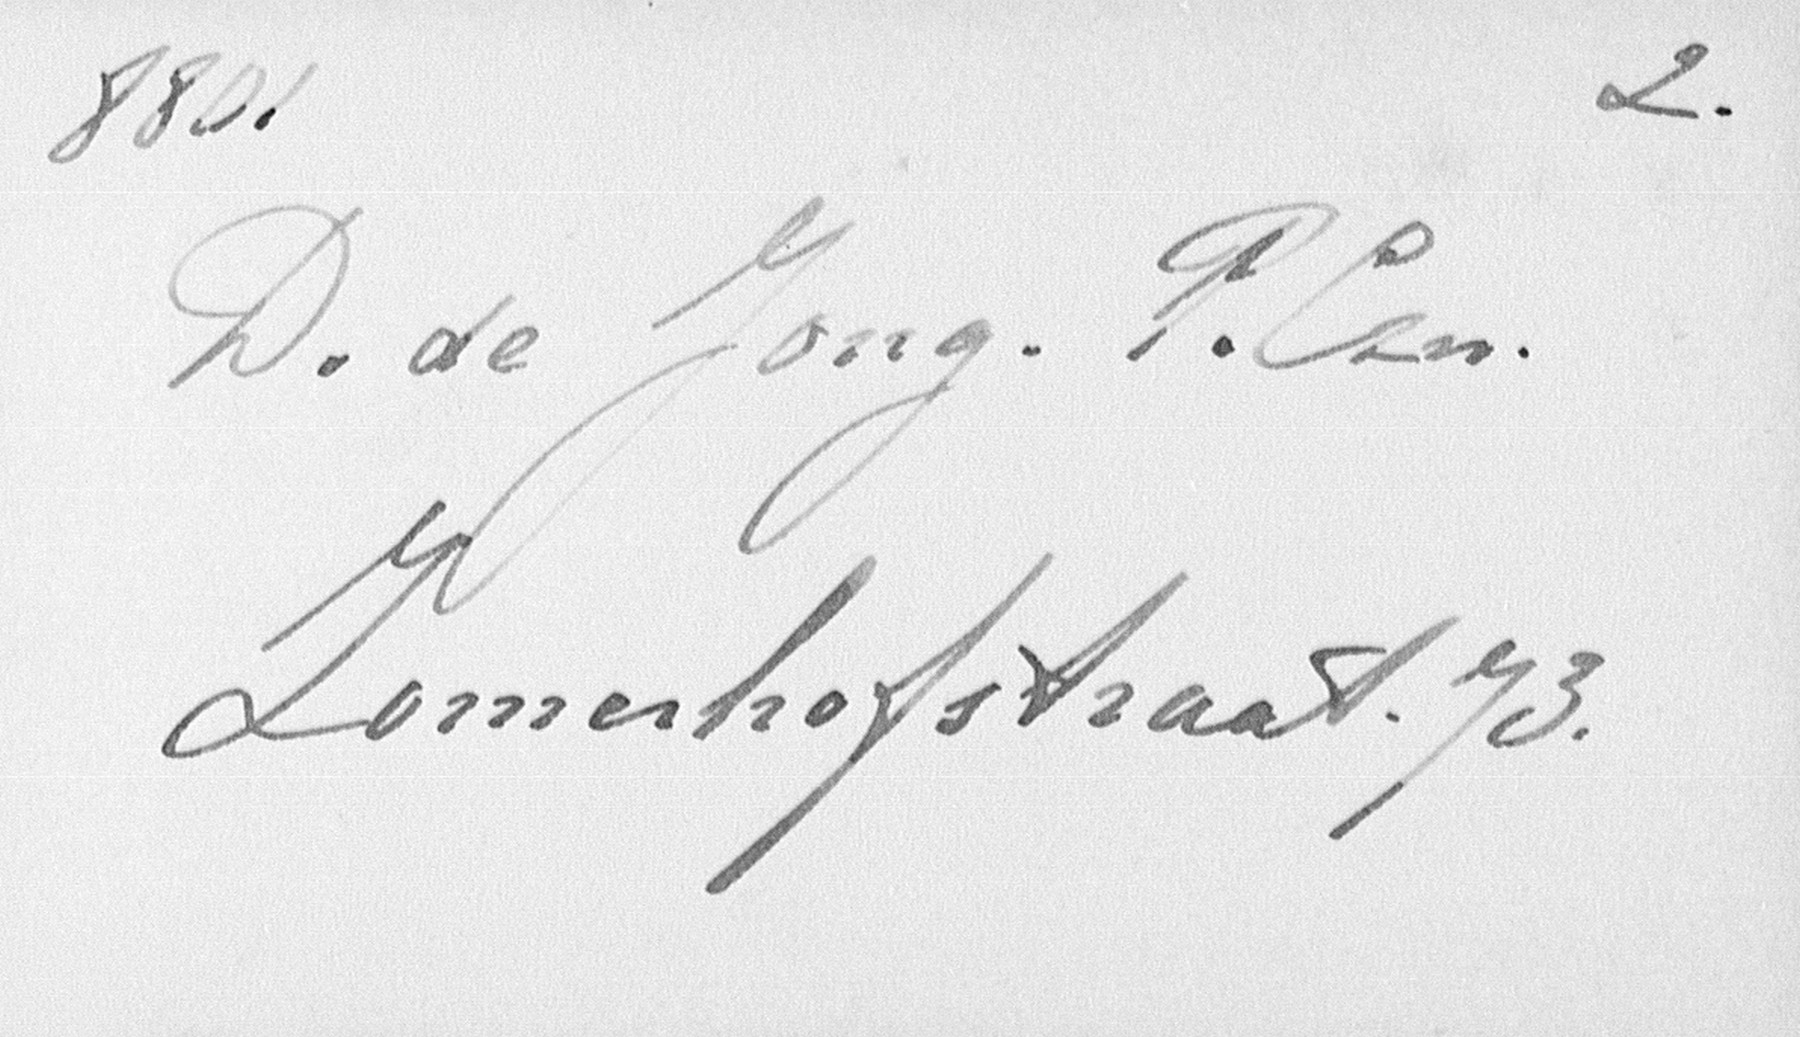 880. 2.
D. de Jong. P. Czn.
Zomerhofstraat. 73.